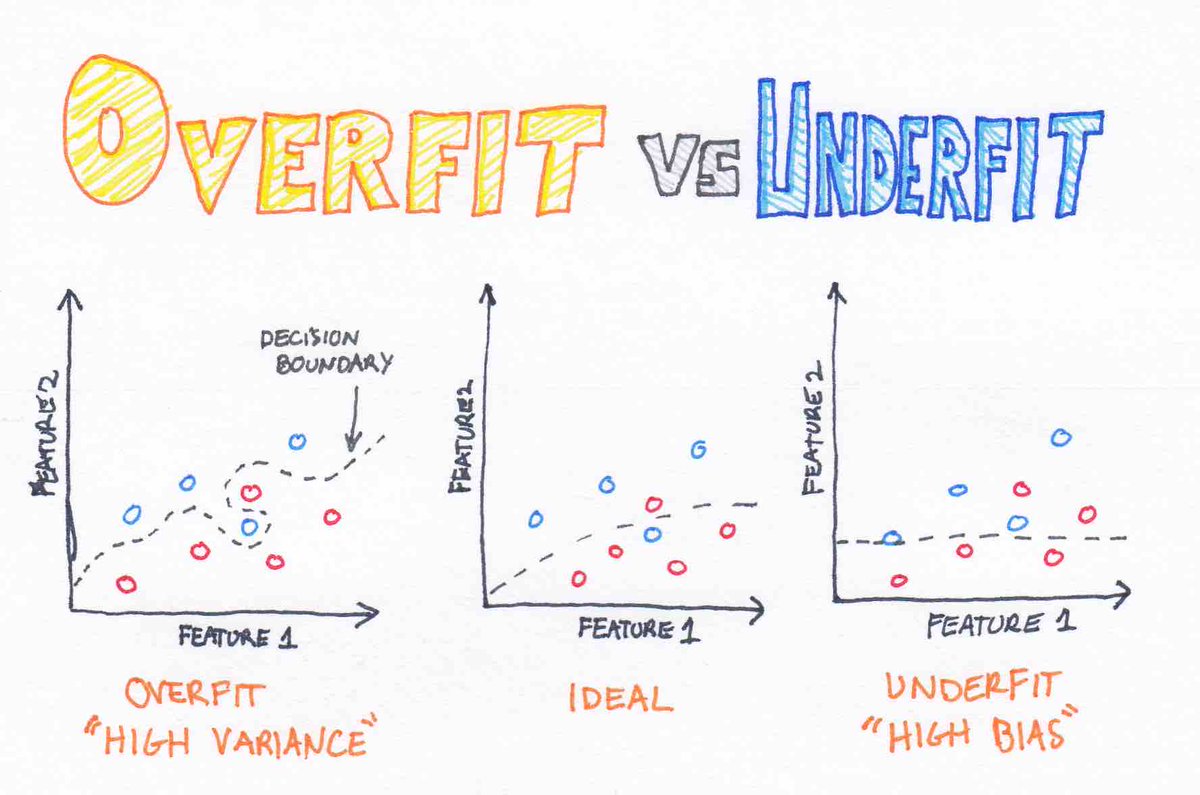 OVERFIT VS UNDERFIT
FEATURE 2
DECISION
BOUNDARY
FEATURE 1
OVERFIT
"HIGH VARIANCE"
FEATURE 2
FEATURE 1
IDEAL
FEATURE 2
FEATURE 1
UNDERFIT
"HIGH BIAS"